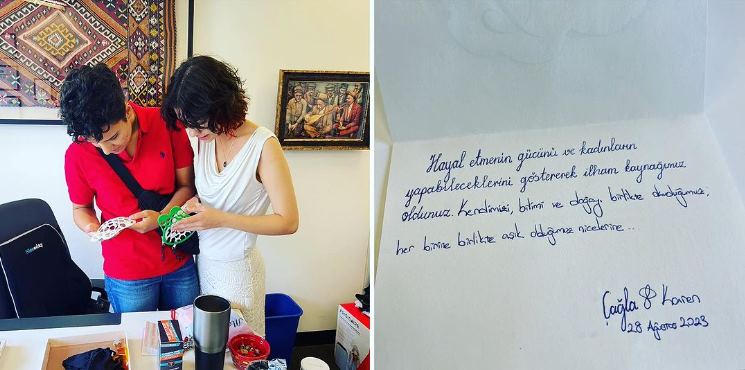 Hayal etmenin gücünü ve kadınların
yapabileceklerini göstererek ilham kaynağımız
oldunuz. Kendimizi, bilimi ve doğayı, birlikte
her birine birlikte aşık olduğumuz nicelerine..
Çağla & Karen
28 Ağustos 2023